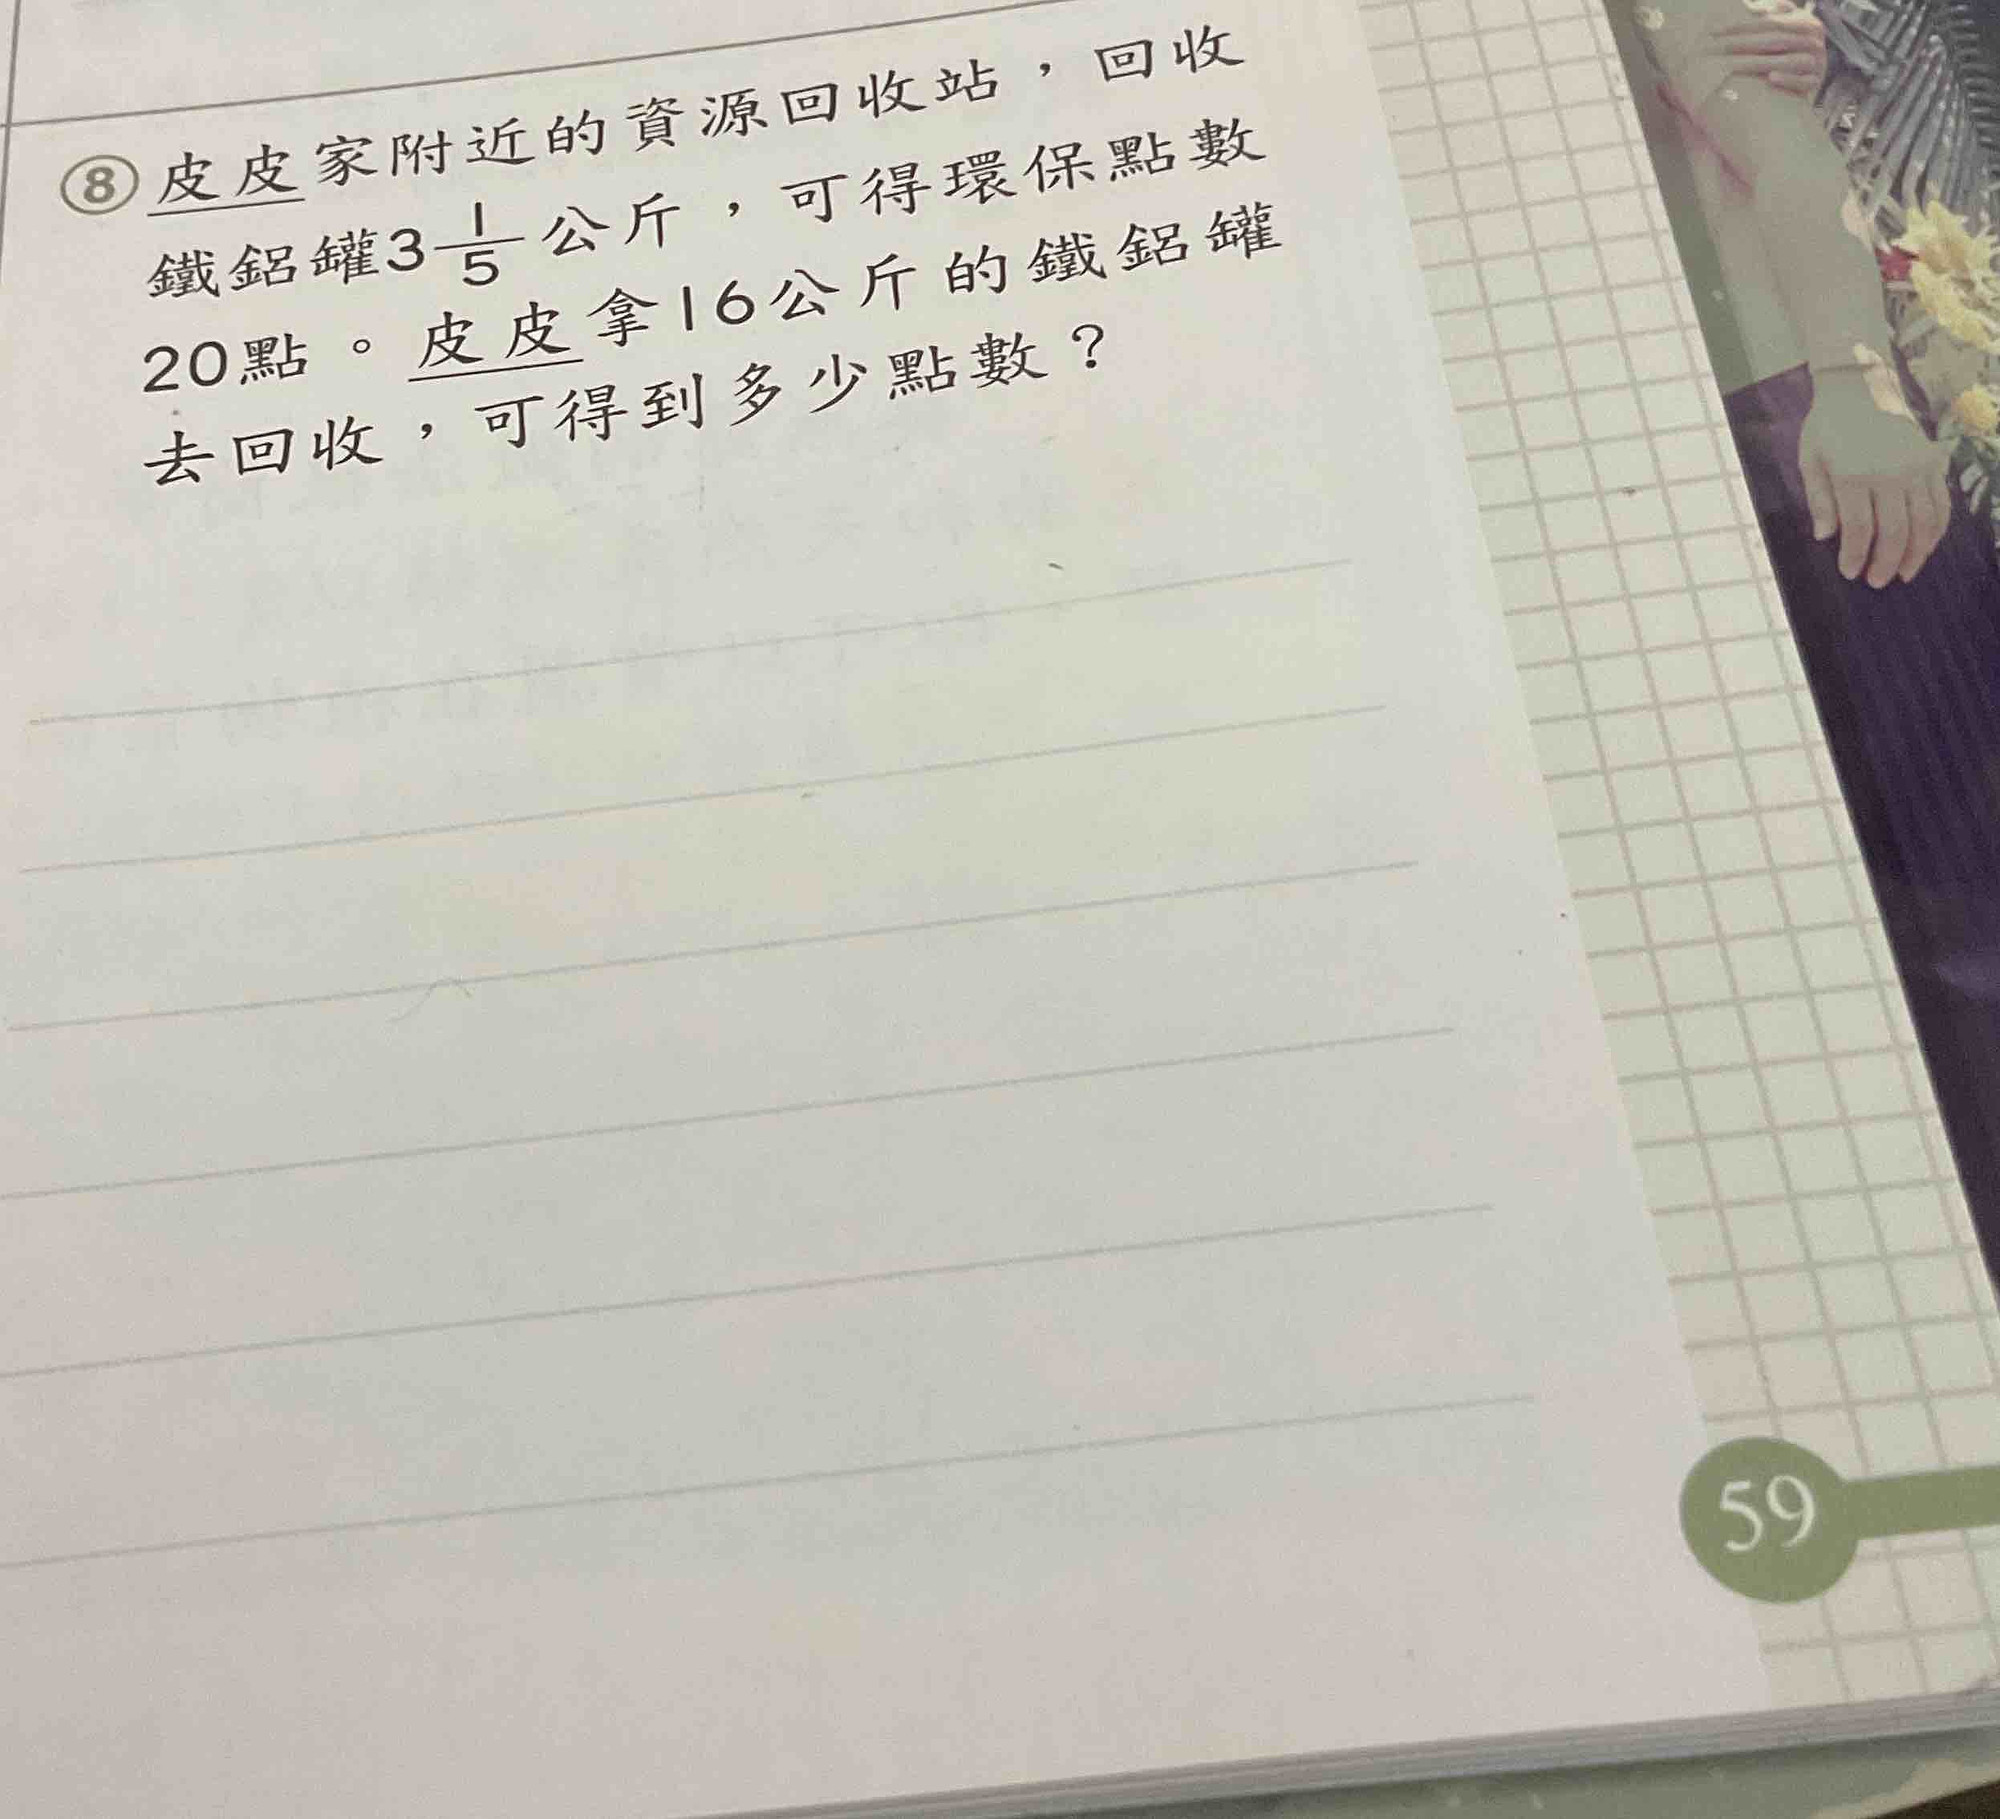 ⑧皮皮家附近的資源回收站，回收
鐵鋁罐3 1/5 公斤，可得環保點數
20點。皮皮拿16公斤的鐵鋁罐
去回收，可得到多少點數？
59